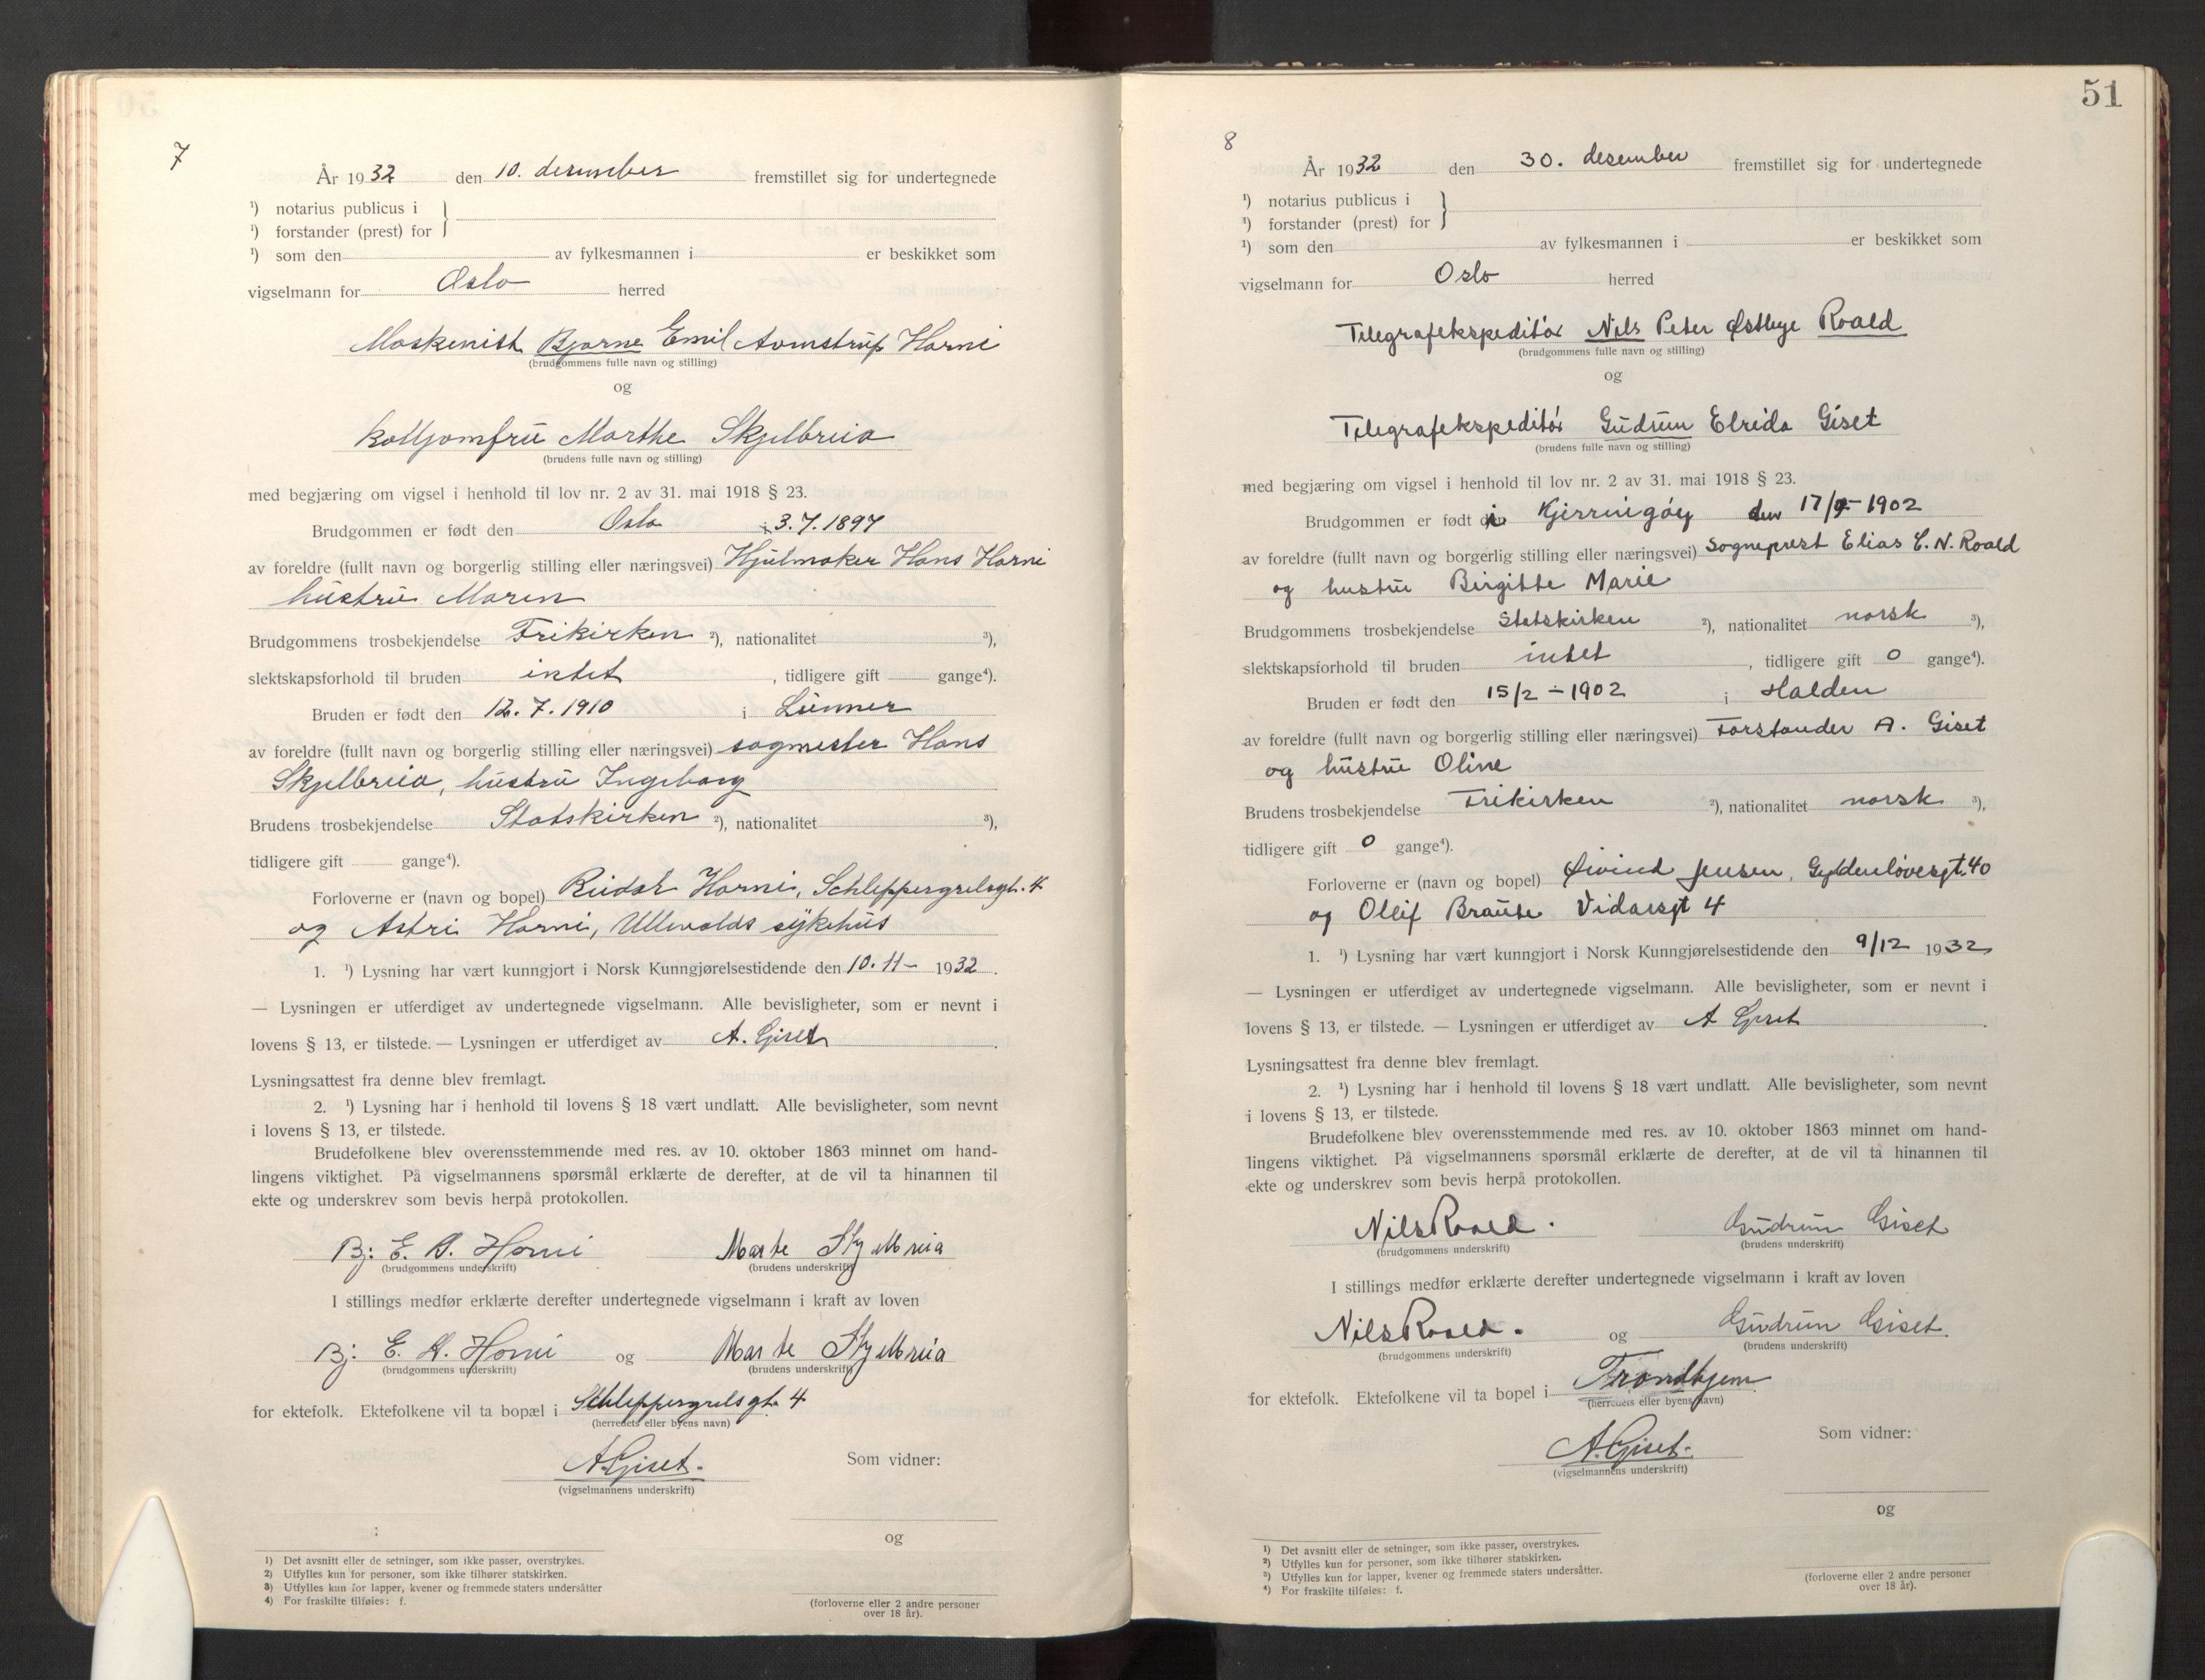 7
År 1932 den 10. desember fremstillet sig for undertegnede
¹) notarius publicus i
¹) forstander (prest) for
¹) som den av fylkesmannen i er beskikket som
vigselmann for Oslo herred
Maskenist Bjarne Emil Harni
(brudgommens fulle navn og stilling)
og
Marthe Skjelbreia
(brudens fulle navn og stilling)
med begjæring om vigsel i henhold til lov nr. 2 av 31. mai 1918 § 23.
Brudgommen er født den Oslo i 3.7.1897
av foreldre (fullt navn og borgerlig stilling eller næringsvei) Hjulmaker Hans Harni
hustru Maren
Brudgommens trosbekjendelse Frikirken ²), nationalitet ³),
slektskapsforhold til bruden intet , tidligere gift gange⁴).
Bruden er født den 12.7.1910 i Lunner
av foreldre (fullt navn og borgerlig stilling eller næringsvei) sagmester Hans
Skjelbreia, hustru Ingeborg
Brudens trosbekjendelse Statskirken ²), nationalitet ³),
tidligere gift gange⁴).
Forloverne er (navn og bopel) Harni, Schleppegrelsgt. 4
og Astri Harni, Ullevolds sykehus
1. ¹) Lysning har vært kunngjort i Norsk Kunngjørelsestidende den 10.11– 1932.
— Lysningen er utferdiget av undertegnede vigselmann. Alle bevisligheter, som er nevnt i
lovens § 13, er tilstede. — Lysningen er utferdiget av A. Giset.
Lysningsattest fra denne blev fremlagt.
2. ¹) Lysning har i henhold til lovens § 18 vært undlatt. Alle bevisligheter, som nevnt
i lovens § 13, er tilstede.
Brudefolkene blev overensstemmende med res. av 10. oktober 1863 minnet om hand-
lingens viktighet. På vigselmannens spørsmål erklærte de derefter, at de vil ta hinannen til
ekte og underskrev som bevis herpå protokollen.
Bj. E. A. Harni Marte Skjelbreia
(brudgommens underskrift) (brudens underskrift)
I stillings medfør erklærte derefter undertegnede vigselmann i kraft av loven
Bj. E. A. Harni og Marte Skjelbreia
(brudgommens underskrift) (brudens underskrift)
for ektefolk. Ektefolkene vil ta bopæl i Schleppegrelsgt. 4
(herredets eller byens navn)
A. Giset.
Som vidner:
(vigselmannens underskrift)
og
¹) Det avsnitt eller de setninger, som ikke passer, overstrykes.
²) Utfylles kun for personer, som ikke tilhører statskirken.
³) Utfylles kun for lapper, kvener og fremmede staters undersåtter
⁴) For fraskilte tilføies: f.
(forloverne eller 2 andre personer
over 18 år).
51
8
År 1932 den 30. desember fremstillet sig for undertegnede
¹) notarius publicus i
¹) forstander (prest) for
¹) som den av fylkesmannen i er beskikket som
vigselmann for Oslo herred
Telegrafekspeditör Nils Peter Østbye Roald
(brudgommens fulle navn og stilling)
og
Telegrafekspeditör Gudrun Elrida Giset
(brudens fulle navn og stilling)
med begjæring om vigsel i henhold til lov nr. 2 av 31. mai 1918 § 23.
Brudgommen er født i Kjerringöy den 17/9-1902
av foreldre (fullt navn og borgerlig stilling eller næringsvei) Sogneprest Elias C. N. Roald
og hustru Birgitte Marie
Brudgommens trosbekjendelse Statskirken ²), nationalitet norsk ³),
slektskapsforhold til bruden intet , tidligere gift 0 gange⁴).
Bruden er født den 15/2 - 1902 i Halden
av foreldre (fullt navn og borgerlig stilling eller næringsvei) Forstander A. Giset
og hustru Oline
Brudens trosbekjendelse Frikirken ²), nationalitet norsk ³),
tidligere gift 0 gange⁴).
Forloverne er (navn og bopel) Øivind Jensen, Gyldenløvesgt. 40
og Vidarsgt 4
1. ¹) Lysning har vært kunngjort i Norsk Kunngjørelsestidende den 9/12 1932
— Lysningen er utferdiget av undertegnede vigselmann. Alle bevisligheter, som er nevnt i
lovens § 13, er tilstede. — Lysningen er utferdiget av A Giset.
Lysningsattest fra denne blev fremlagt.
2. ¹) Lysning har i henhold til lovens § 18 vært undlatt. Alle bevisligheter, som nevnt
i lovens § 13, er tilstede.
Brudefolkene blev overensstemmende med res. av 10. oktober 1863 minnet om hand-
lingens viktighet. På vigselmannens spørsmål erklærte de derefter, at de vil ta hinannen til
ekte og underskrev som bevis herpå protokollen.
Nils Roald. Gudrun Giset
(brudgommens underskrift) (brudens underskrift)
I stillings medfør erklærte derefter undertegnede vigselmann i kraft av loven
Nils Roald. og Gudrun Giset.
(brudgommens underskrift) (brudens underskrift)
for ektefolk. Ektefolkene vil ta bopel i Trondhjem
(herredets eller byens navn)
A. Giset.
Som vidner:
(vigselmannens underskrift)
og
¹) Det avsnitt eller de setninger, som ikke passer, overstrykes.
²) Utfylles kun for personer, som ikke tilhører statskirken.
³) Utfylles kun for lapper, kvener og fremmede staters undersåtter.
⁴) For fraskilte tilføies: f.
(forloverne eller 2 andre personer
over 18 år).